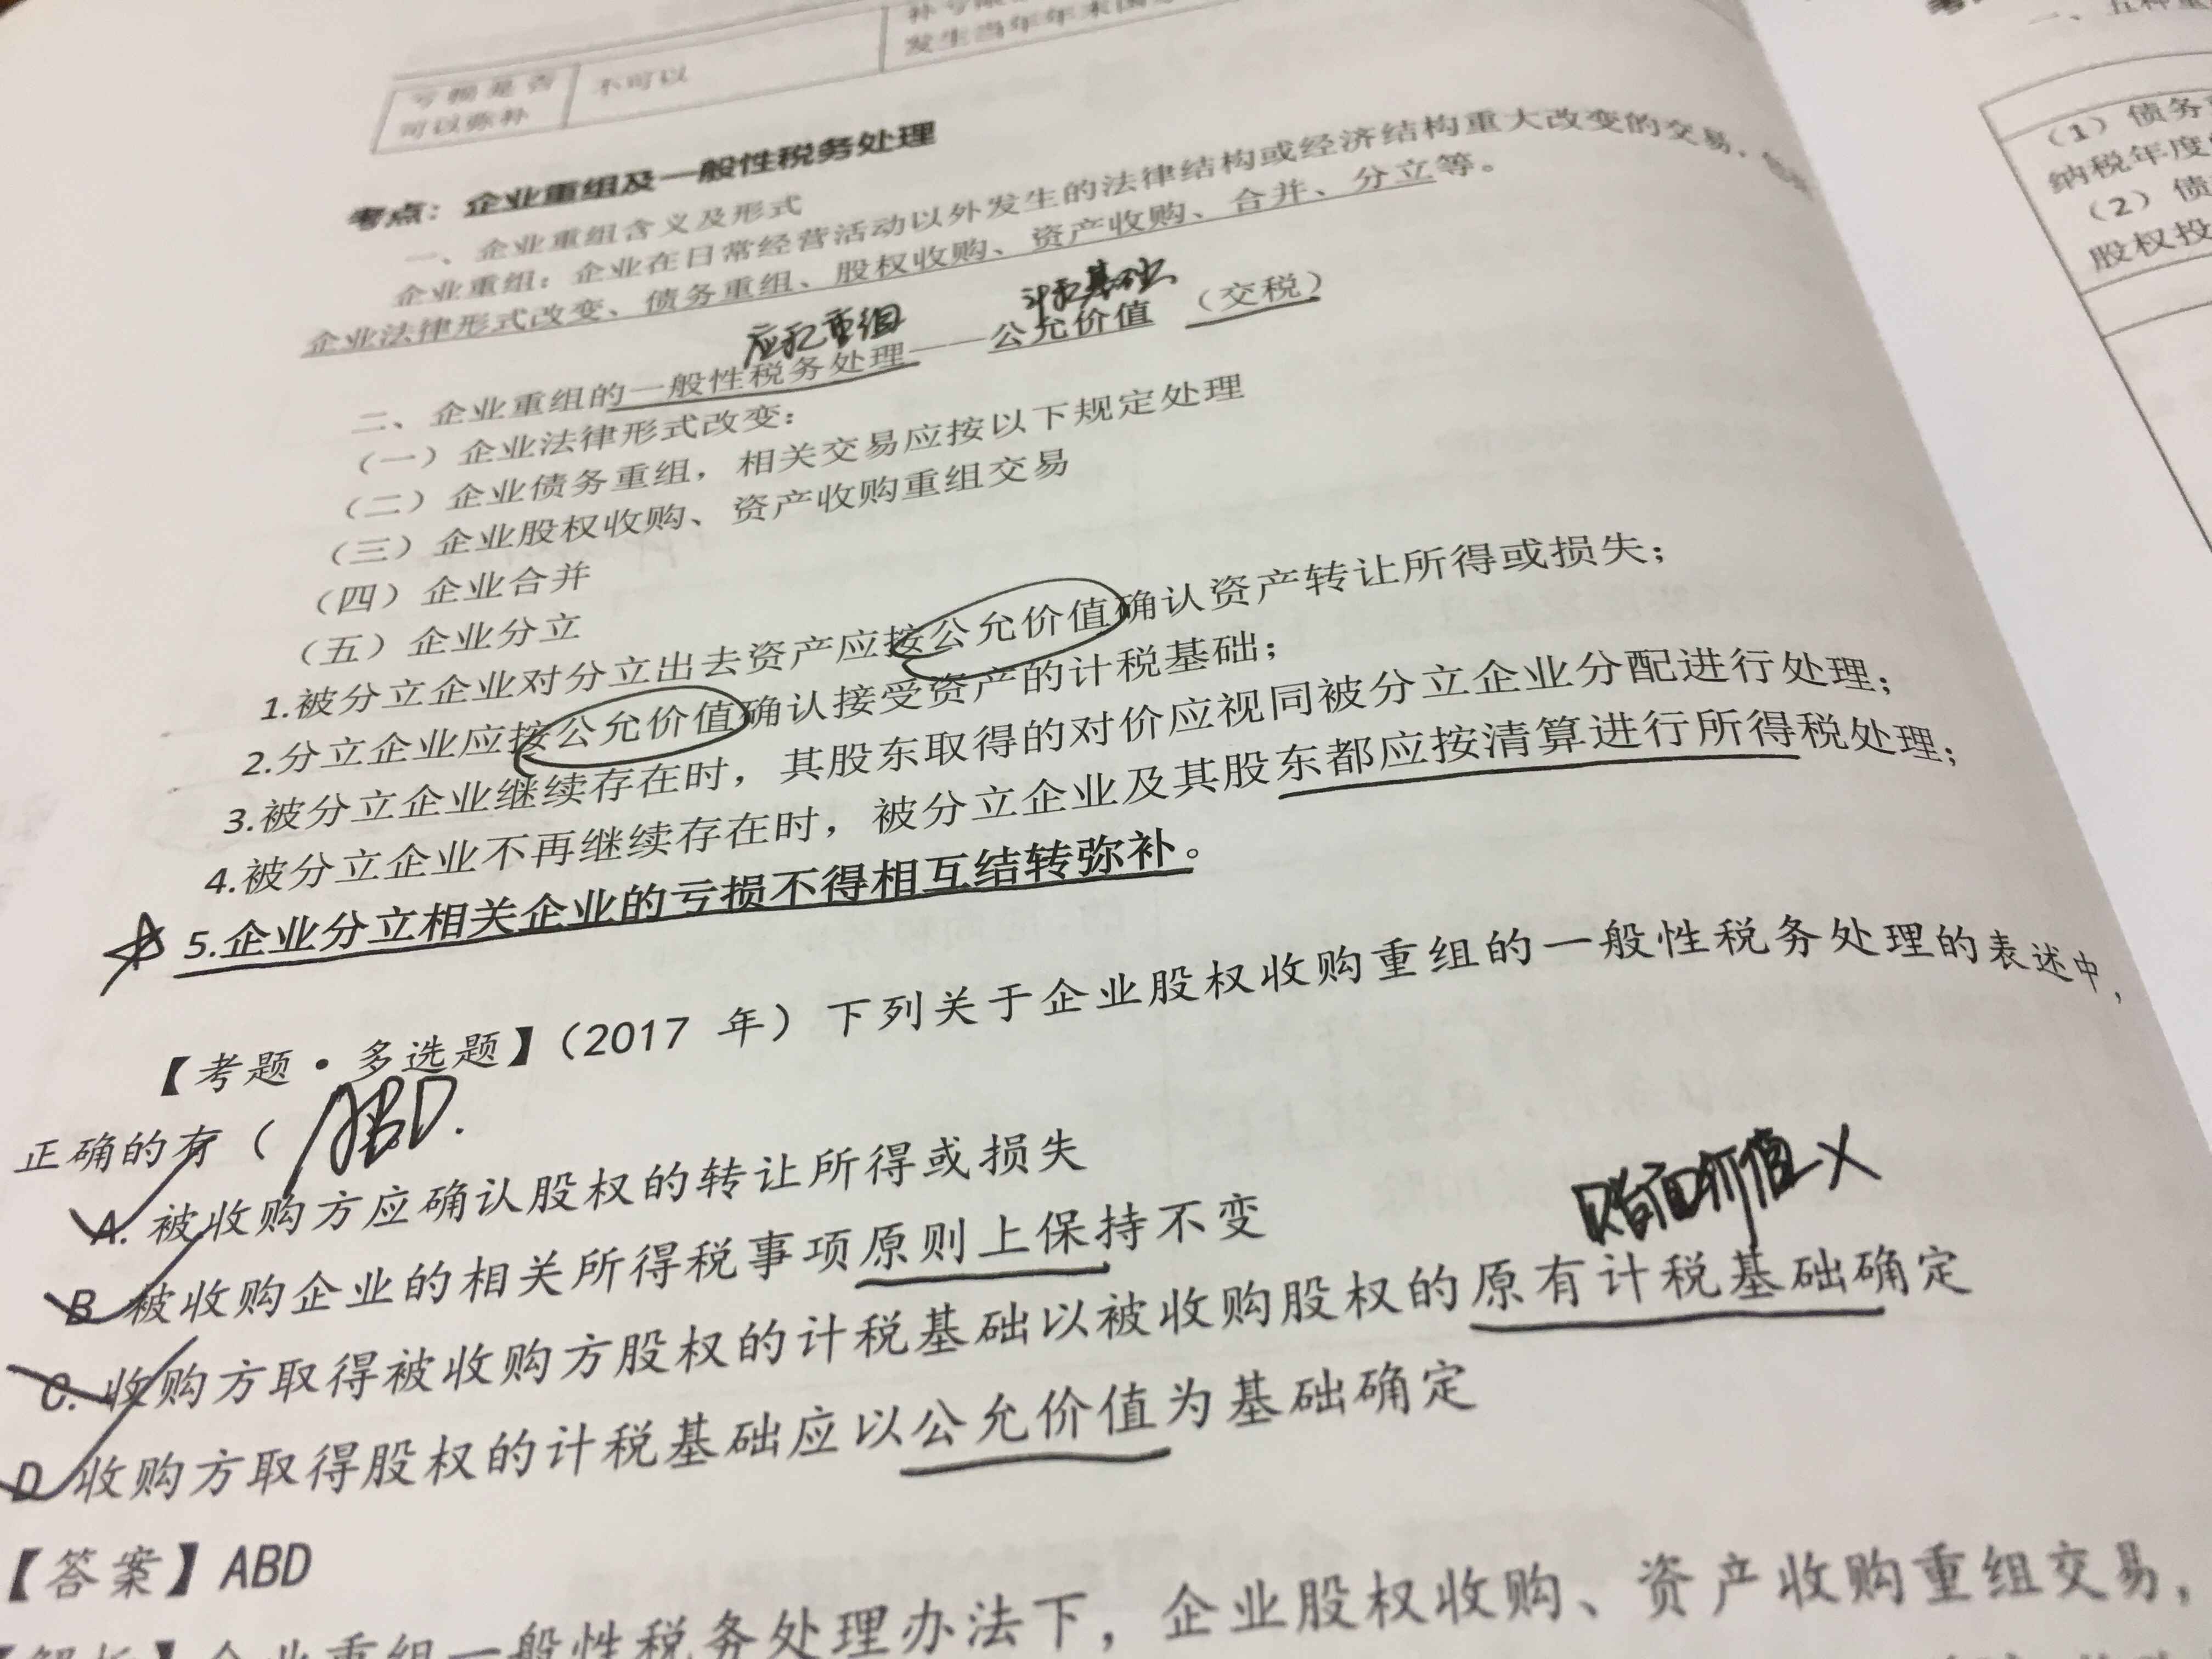 发生当年年末国
亏损是否 不可以
可以弥补
考点：企业重组及一般性税务处理
一、企业重组含义及形式
企业重组：企业在日常经营活动以外发生的法律结构或经济结构重大改变的交易，
企业法律形式改变、债务重组、股权收购、资产收购、合并、分立等。
计税基础
二、企业重组的一般性税务处理——公允价值（交税）
（一）企业法律形式改变：
（二）企业债务重组，相关交易应按以下规定处理
（三）企业股权收购、资产收购重组交易
（四）企业合并
（五）企业分立
1.被分立企业对分立出去资产应按公允价值确认资产转让所得或损失；
2.分立企业应按公允价值确认接受资产的计税基础；
3.被分立企业继续存在时，其股东取得的对价应视同被分立企业分配进行处理；
4.被分立企业不再继续存在时，被分立企业及其股东都应按清算进行所得税处理；
5.企业分立相关企业的亏损不得相互结转弥补。
【考题·多选题】（2017 年）下列关于企业股权收购重组的一般性税务处理的表述中，
正确的有（ ABD.
A.被收购方应确认股权的转让所得或损失
B 被收购企业的相关所得税事项原则上保持不变
账面价值 X
C.收购方取得被收购方股权的计税基础以被收购股权的原有计税基础确定
D 收购方取得股权的计税基础应以公允价值为基础确定
【答案】ABD
【解析】企业重组一般性税务处理办法下，企业股权收购、资产收购重组交易，
（1）债务
纳税年度
（2）债
股权投